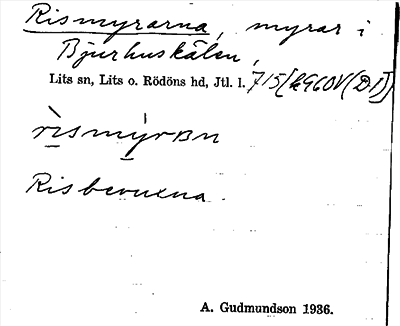 Rismyrarna, myrar i
Bjurhuskälen,
Lits sn, Lits o. Rödöns hd, Jtl. l. 715[
rìsmýrBn
Risbevuxna.
A. Gudmundson 1936.